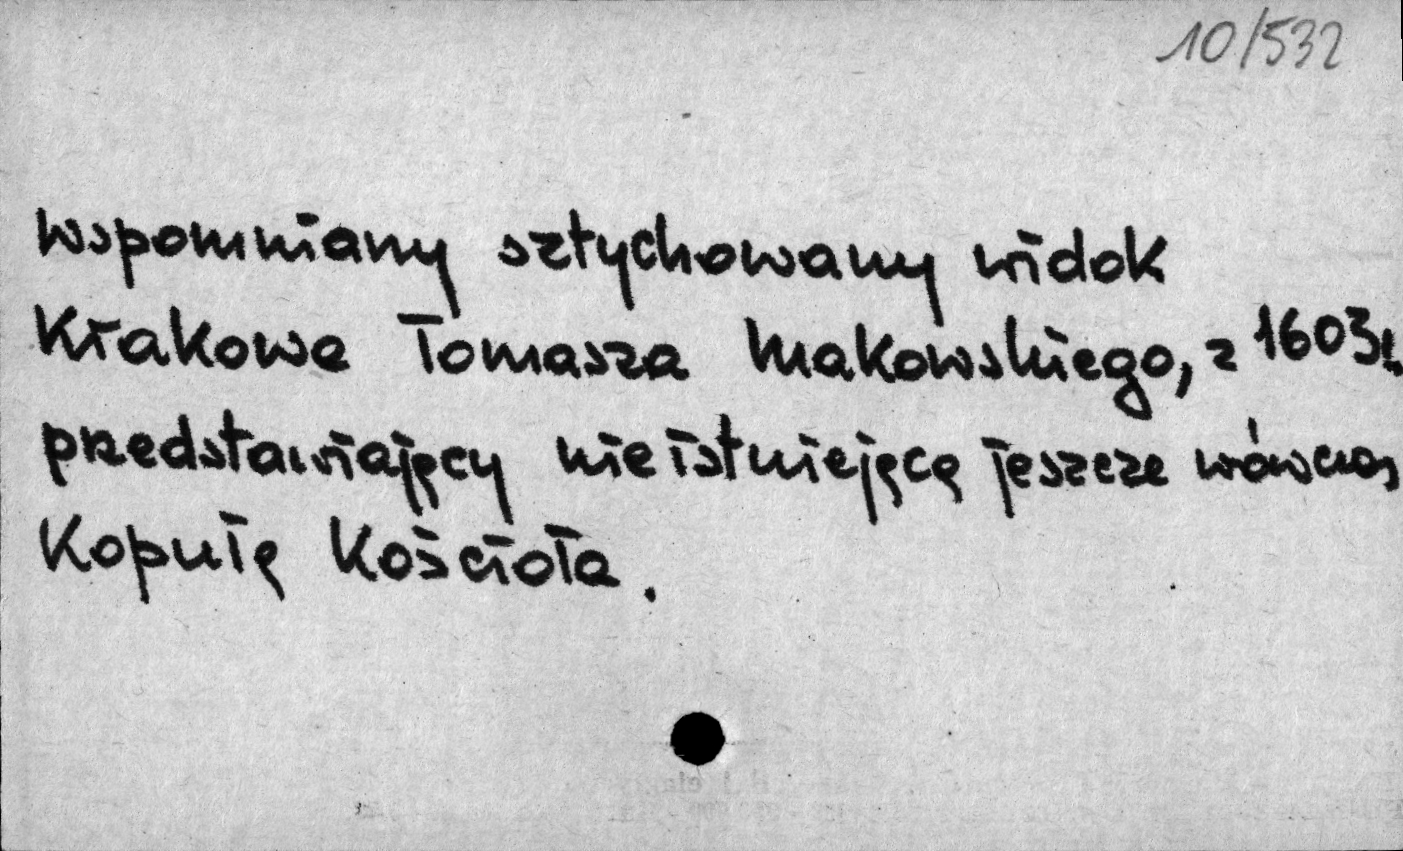 10/532
wspomniany sztychowany widok
Krakowa Tomasza Makowskiego, z 1603r.
przedstawiający nieistniejącą jeszcze wówczas
Kopułę Kościoła.